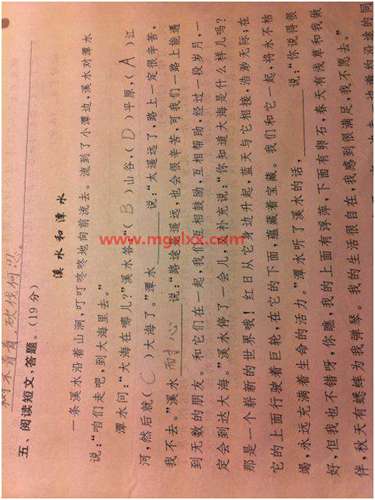 五、阅读短文,答题。(19分)
溪水和潭水
一条溪水沿着山涧,叮叮咚咚地向前流去。流到了小潭边,溪水对潭水
说:“咱们走吧,到大海里去。”
潭水问:“大海在哪儿?”溪水答:“(B)山谷,(D)平原,(A)江
河,然后就(C)大海了。”潭水 说:“太遥远了,路上一定很辛苦,
我不去。”溪水 耐心 说:“路途虽遥远,也会很辛苦,可我们一路上能遇
到无数的朋友,和它们在一起,我们互相鼓励,互相帮助,经过一段岁月,一
定会到达大海。”溪水停了一会儿,又补充说:“你知道大海是什么样儿吗?
那是一个崭新的世界哦!红日从它身边升起,蓝天与它相接,浩渺无际;在
它的上面行驶着巨轮,在它的下面,蕴藏着宝藏。我们和它一起,将永不枯
竭,永远充满着生命的活力。”潭水听了溪水的话, 说:“你说得很
好,但,我也不错呀,你瞧,我的上面有浮萍,下面有卵石,春天有浅草和我做
伴,秋天有蟋蟀为我弹琴。我的生活很自在,我感到很满足,我不离去。”